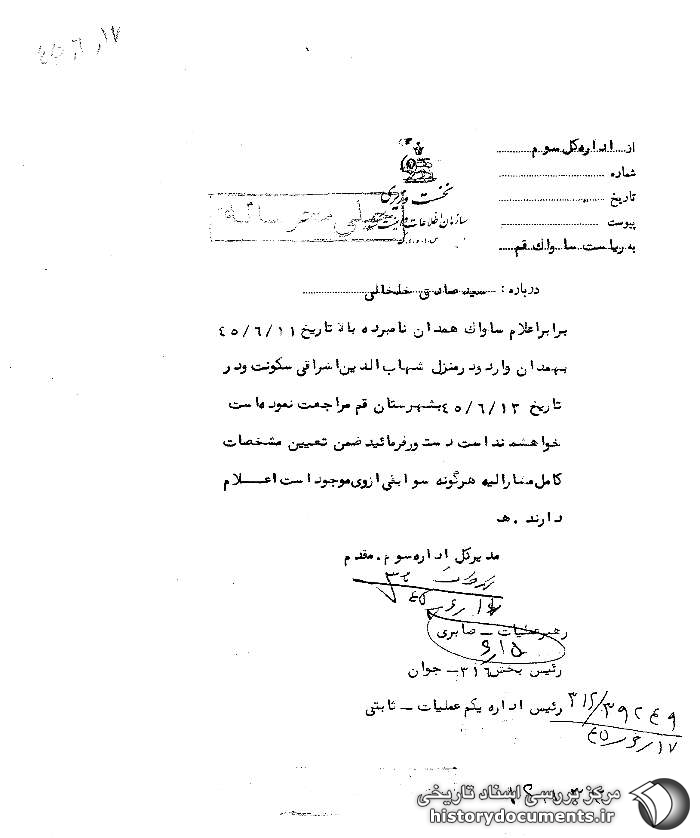 ۴۵/۶/۱۷
از اداره کل سوم
شماره
تاریخ
پیوست
به ریاست ساواک قم
نخست وزیری
سازمان اطلاعات و امنیت کشور
خیلی محرمانه
درباره : سید صادق خلخالی
برابر اعلام ساواک همدان نامبرده بالا تاریخ ۴۵/۶/۱۱
بهمدان وارد و در منزل شهاب الدین اشراقی سکونت و در
تاریخ ۴۵/۶/۱۳ بشهرستان قم مراجعت نموده است
خواهشمند است دستور فرمائید ضمن تعیین مشخصات
کامل مشارالیه هرگونه سوابقی از وی موجود است اعلام
دارند . ه
مدیرکل اداره سوم . مقدم
رهبر عملیات – صابری
۶/۱۵
رئیس بخش ۳۱۶ – جوان
رئیس اداره یکم عملیات – ثابتی
۳۱۲/۳۹۲۴۹
۴۵/۶/۱۷
مرکز بررسی اسناد تاریخی
historydocuments.ir